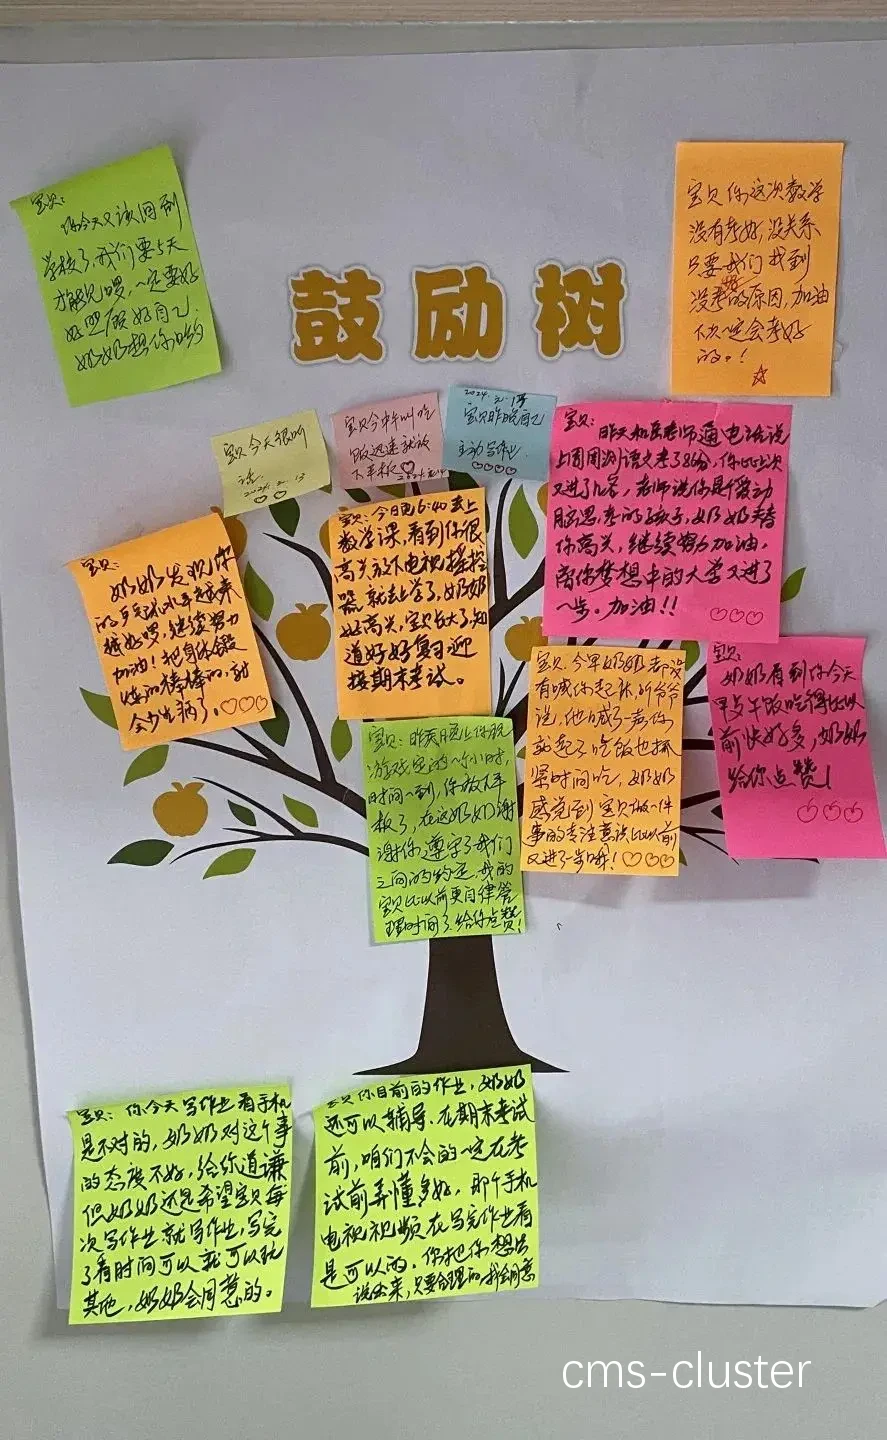 宝贝:
你今天又该回到
学校了,我们要5天
才能见喽,一定要好
好照顾好自己
奶奶想你哟
宝贝你这次数学
没有考好,没关系
只要我们找到
没考好的原因,加油
下次一定会考好
的。!
鼓励树
宝贝今天很听
话。
2024.2.13
宝贝今中午叫吃
饭迅速就放
下平板
2024.2.14
2024.2.15
宝贝昨晚自己
主动写作业
宝贝:
昨天和岳老师通电话说
上周周测语文考了86分,你比上次
又进了几名,老师说你是个爱动
脑思考的孩子,奶奶替
你高兴,继续努力加油,
离你梦想中的大学又进了
一步。加油!!
宝贝:
奶奶发现你
的乒乓球水平越来
越好啰,继续努力
加油!把身体锻
炼的棒棒的,就
会少生病了。
宝贝:今日晚6:40去上
数学课,看到你很
高兴放下电视摇控
器就去上学了,奶奶
好高兴,宝贝长大了,知
道好好复习迎
接期末考试。
宝贝:今早奶奶都没
有喊你起床,听爷爷
说,他喊了一声,你
就起了,吃饭也抓
紧时间吃,奶奶
感觉到宝贝做一件
事的专注意识比以前
又进了一步哦!
宝贝:
奶奶看到你今天
早上午饭吃得比以
前快好多,奶奶
给你点赞!
宝贝:昨天晚上你玩
游戏定的一个小时,
时间一到,你放下平
板了,在这奶奶谢
谢你遵守了我们
之间的约定,我的
宝贝比以前更自律管
理时间了,给你点赞!
宝贝:你今天写作业看手机
是不对的,奶奶对这个事
的态度不好,给你道谦
但奶奶还是希望宝贝每
次写作业就写作业,写完
了看时间可以就可以玩
其他,奶奶会同意的。
宝贝你目前的作业,奶奶
还可以辅导,在期末考试
前,咱们不会的一定在考
试前弄懂多好,那个手机
电视视频在写完作业看
是可以的,你把你想法
说出来,只要合理的,我会同意
cms-cluster